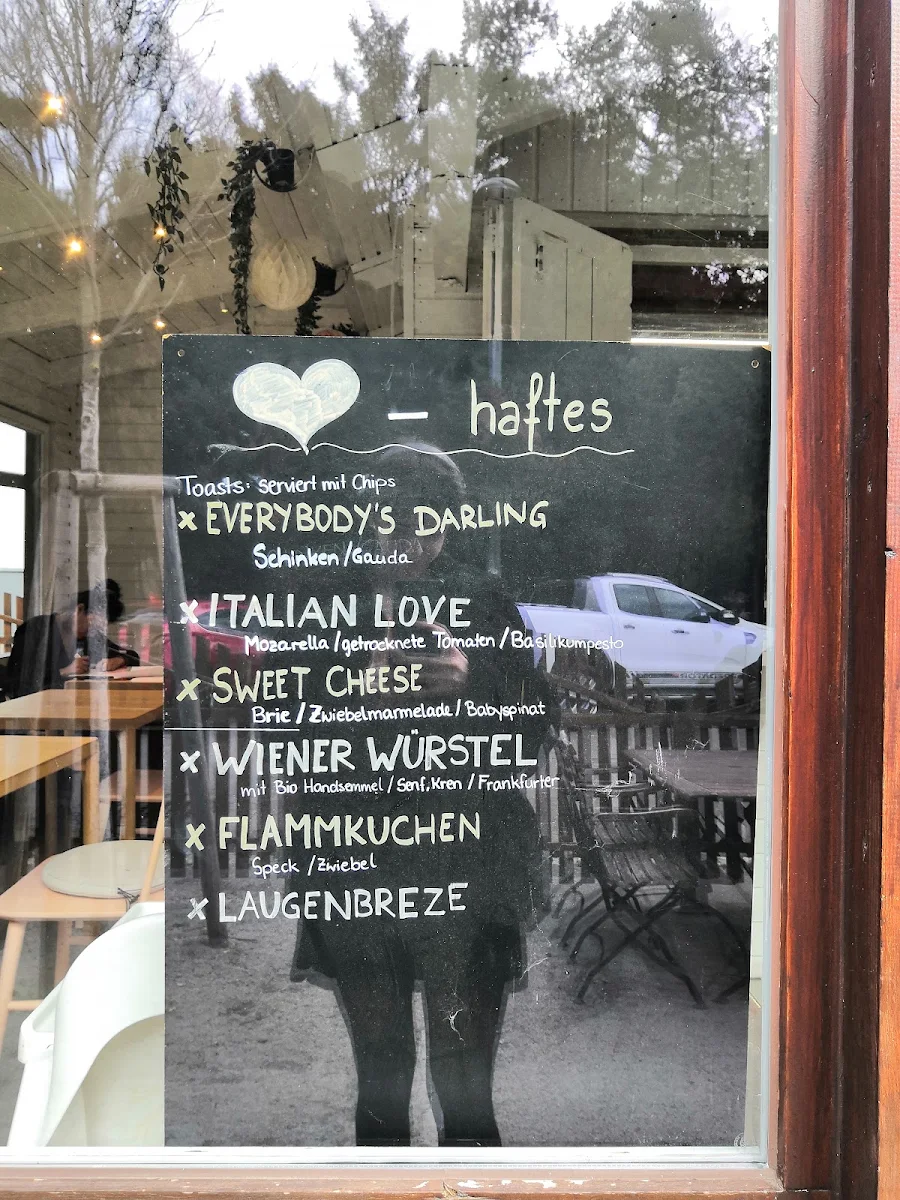 - haftes
Toasts: serviert mit Chips
x EVERYBODY'S DARLING
Schinken / Gauda
x ITALIAN LOVE
Mozarella / getrocknete Tomaten / Basilikumpesto
x SWEET CHEESE
Brie / Zwiebelmarmelade / Babyspinat
x WIENER WÜRSTEL
mit Bio Handsemmel / Senf, Kren / Frankfurter
x FLAMMKUCHEN
Speck / Zwiebel
x LAUGENBREZE